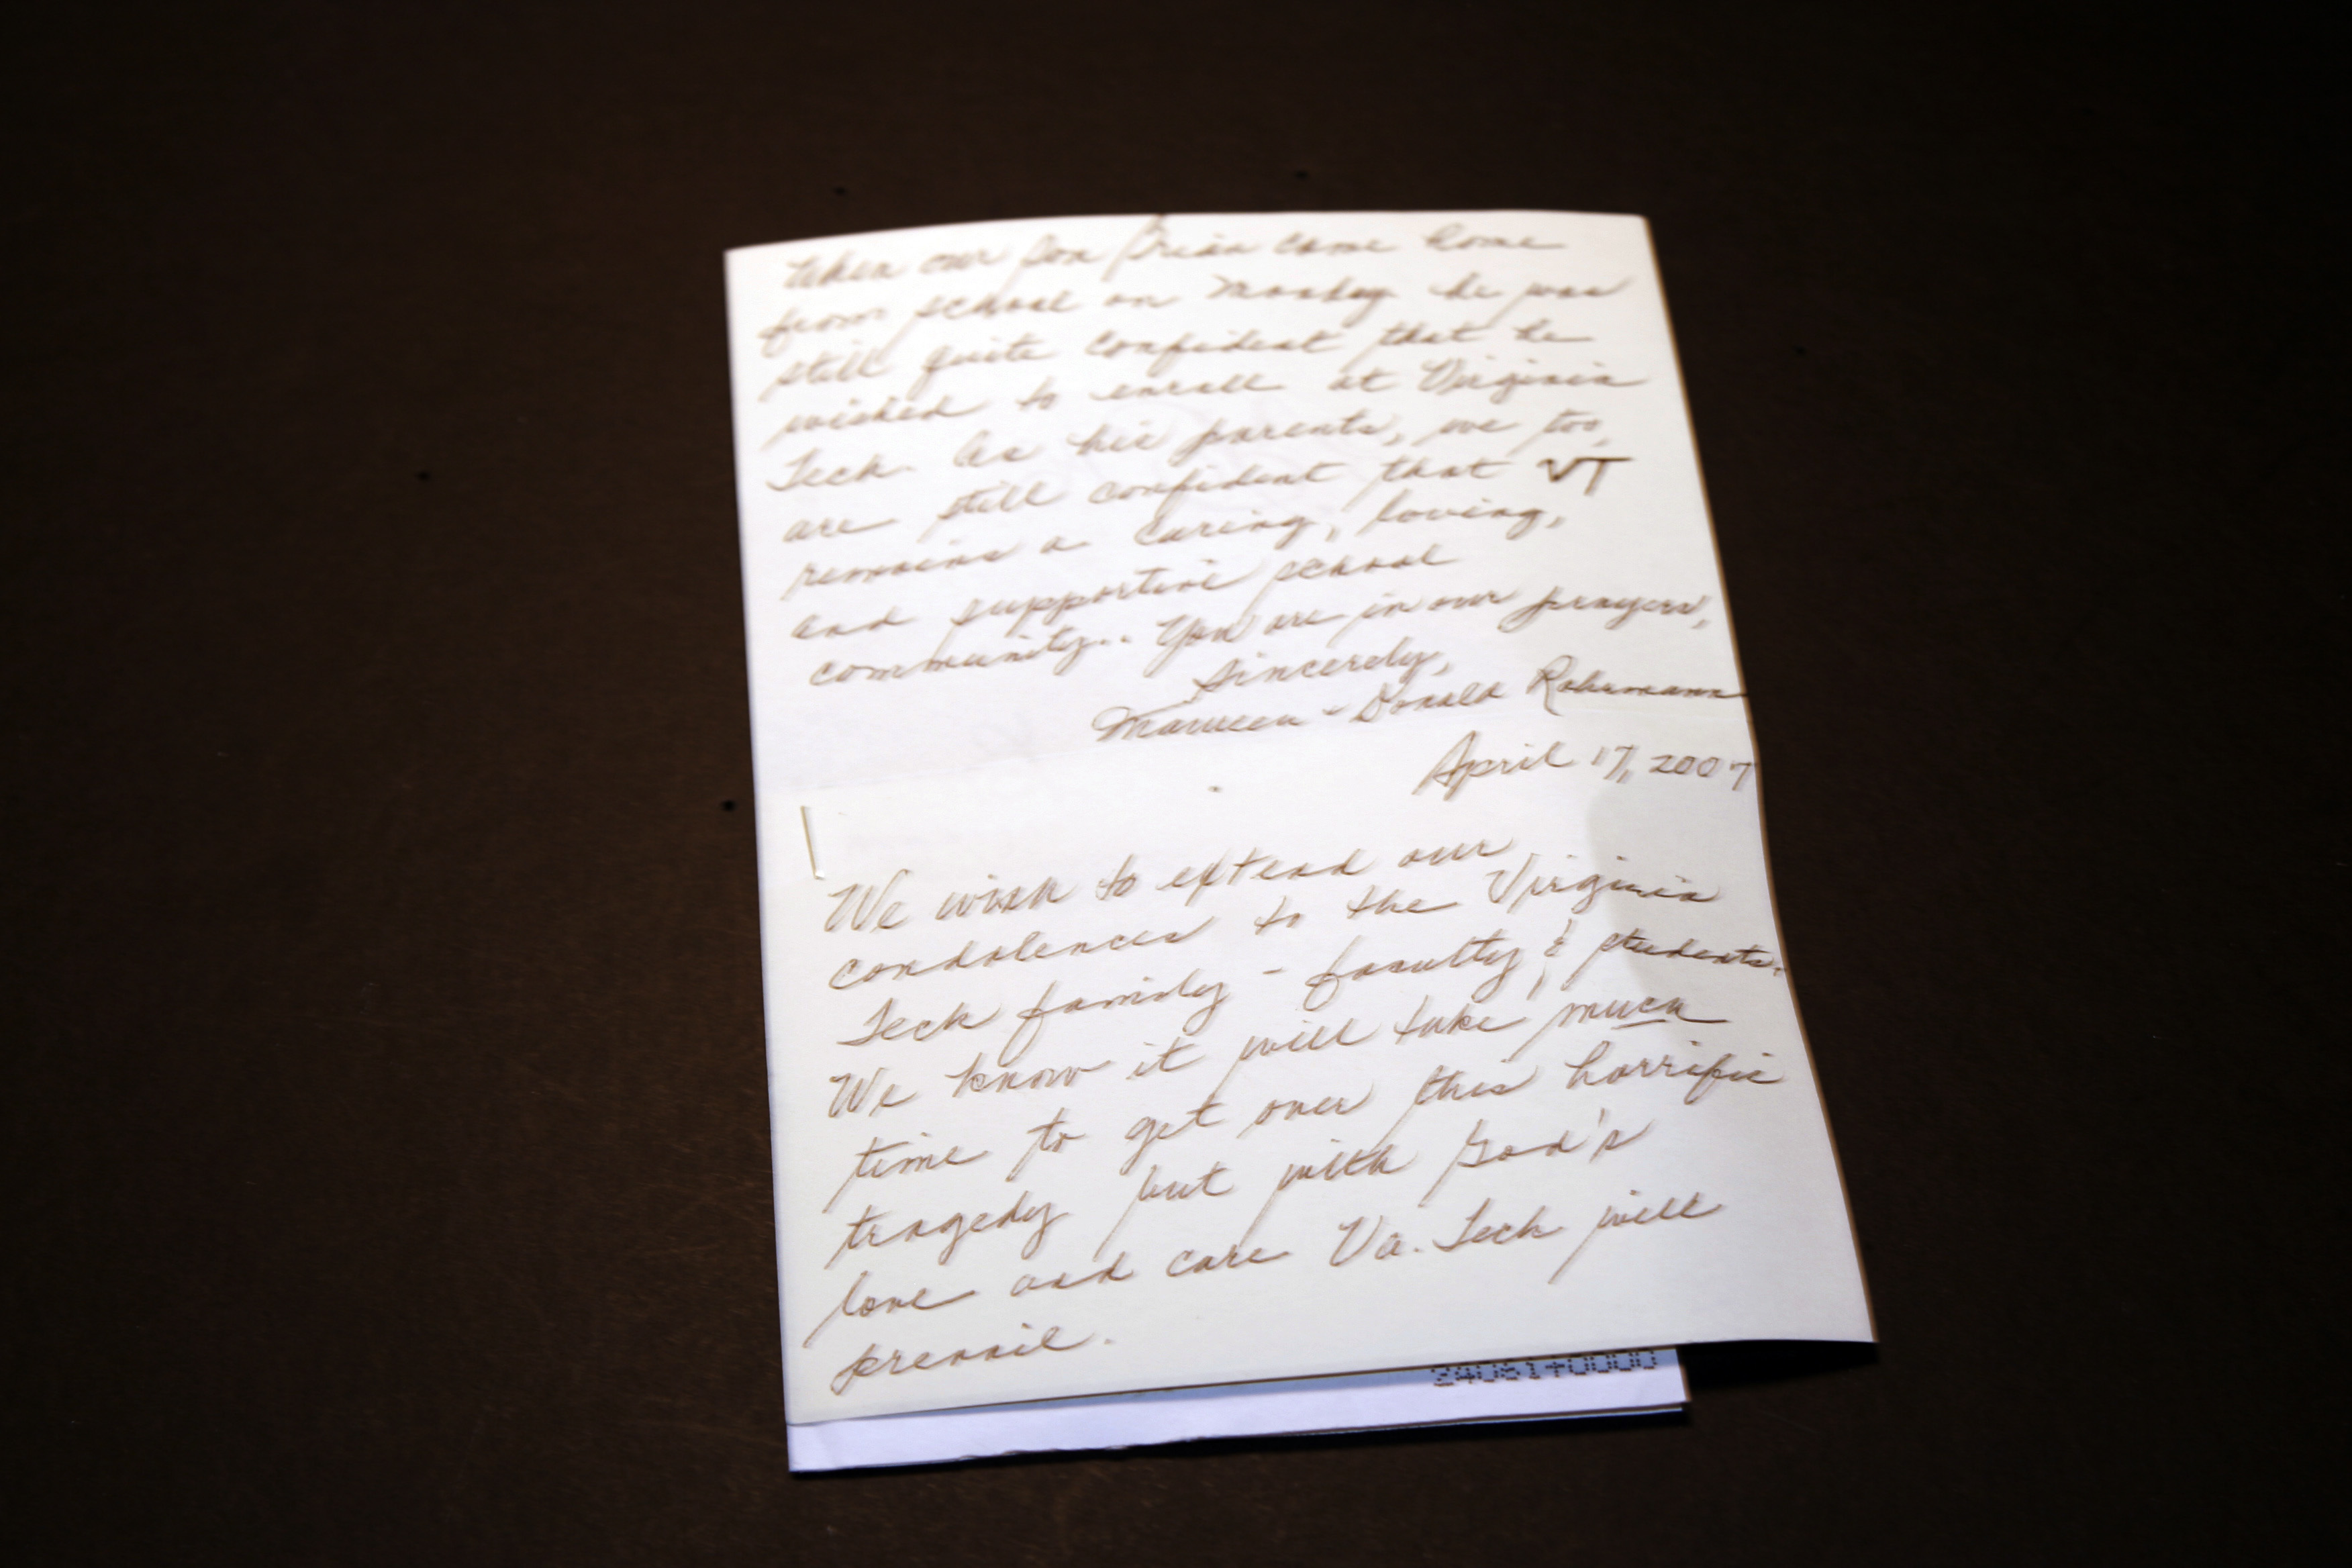 When our son Brian came home
from school on Monday he was
still quite confident that he
wished to enroll at Virginia
Tech. As his parents, we too,
are still confident that VT
remains a caring, loving,
and supportive school
community.. You are in our prayers,
Sincerely,
Maureen - Donald Rohrmann
April 17, 2007
We wish to extend our
condolences to the Virginia
Tech family - faculty & students.
We know it will take much
time to get over this horrific
tragedy but with God's
love and care Va. Tech will
prevail.
24061+0000